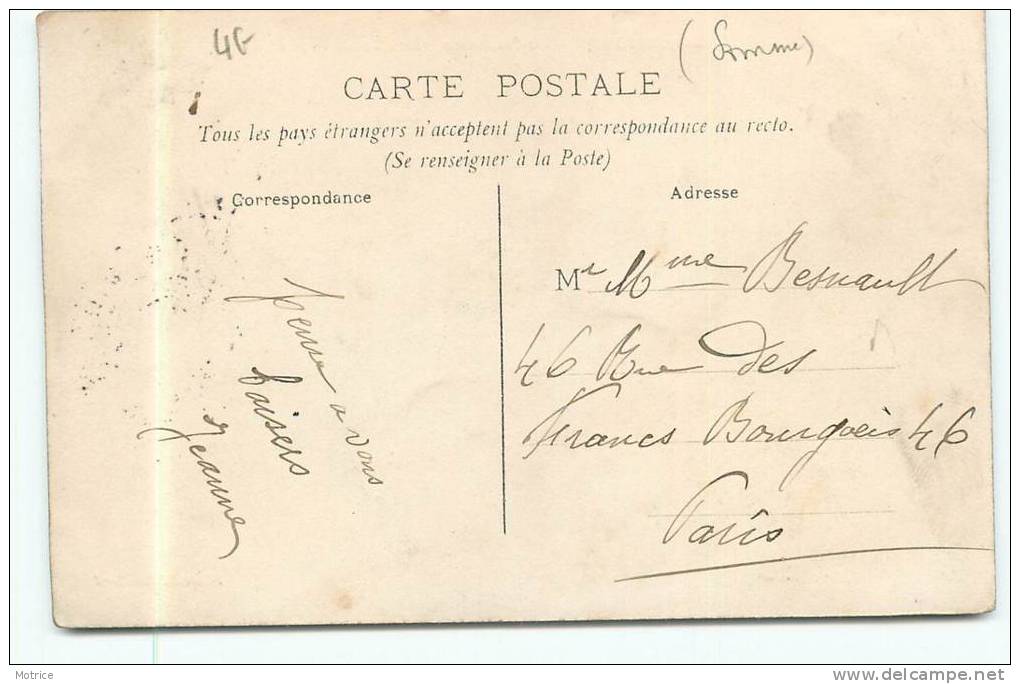 4F
(Somme)
CARTE POSTALE
Tous les pays étrangers n'acceptent pas la correspondance au recto.
(Se renseigner à la Poste)
Correspondance
Adresse
Pense a vous
baisers
Jeanne
Mr Mme Besnault
46 Rue des
Francs Bourgeois 46
Paris
Motrice
www.delcampe.net